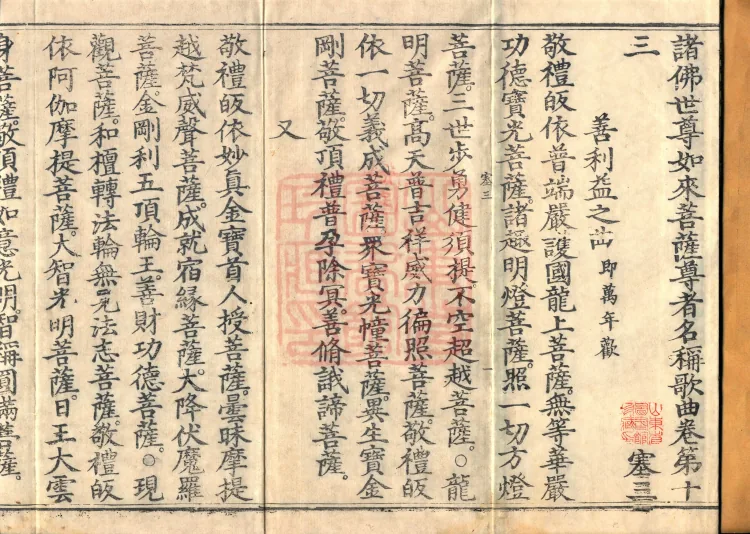 諸佛世尊如來菩薩尊者名稱歌曲卷第十
三 塞三
善利益之曲 即萬年歡
敬禮皈依普端嚴護國龍上菩薩。無等華嚴
功德寶光菩薩。諸趣明燈菩薩。照一切方燈
菩薩。三世步勇健須提不空超越菩薩。○龍
塞三
明菩薩。高天普吉祥威力徧照菩薩。敬禮皈
依一切義成菩薩。眾寶光幢菩薩。異生寶金
剛菩薩。敬頂禮普孕除冥。善脩誐諦菩薩。
又
敬禮皈依妙真金寶首人授菩薩。曇昧摩提
越梵威聲菩薩。成就宿緣菩薩。大降伏魔羅
菩薩。金剛利五頂輪王。善財功德菩薩。○現
觀菩薩。和檀轉法輪無咒法志菩薩。敬禮皈
依阿伽摩提菩薩。大智光明菩薩。日王大雲
身菩薩。敬頂禮如意光明。智稱圓滿菩薩。